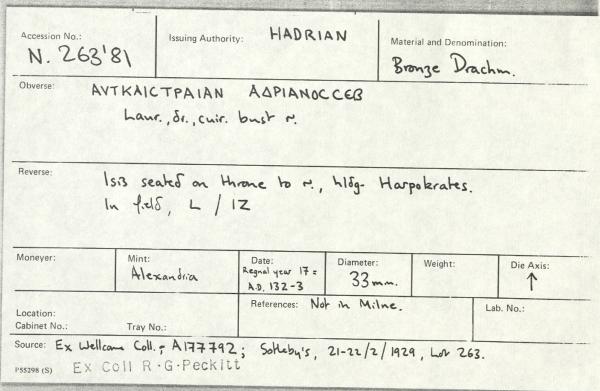 Accession No.: N. 263'81
Issuing Authority: HADRIAN
Material and Denomination: Bronze Drachm.
Obverse: ΑVΤΚΑΙCΤΡΑΙΑΝ ΑΔΡΙΑΝΟCCЄΒ
Laur., dr., cuir. bust r.
Reverse: Isis seated on throne to r., hldg. Harpokrates.
In field, L / IZ
Moneyer:
Mint: Alexandria
Date: Regnal year 17 =
A.D. 132-3
Diameter: 33mm.
Weight:
Die Axis: ↑
Location:
Cabinet No.: Tray No.:
References: Not in Milne.
Lab. No.:
Source: Ex Wellcome Coll., A177792; Sotheby's, 21-22/2/1929, Lot 263.
P55298 (S) Ex Coll R·G·Peckitt